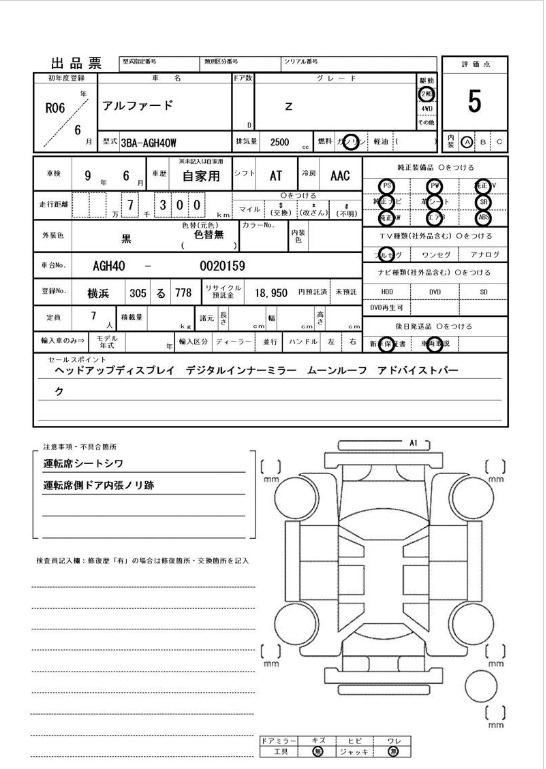 出品票 型式指定番号 類別区分番号 シリアル番号 評価点
初年度登録 車名 ドア数 グレード 駆動
R06 年 6 月 アルファード D Z 2WD 4WD その他 5
型式 3BA-AGH40W 排気量 2500 cc 燃料 ガソリン 軽油 ( 内装 A B C
車検 9 年 6 月 車歴 ※未記入は自家用 自家用 シフト AT 冷房 AAC 純正装備品 ○をつける
PS PW 純正TV
走行距離 万 7 千 3 0 0 km ○をつける マイル $(交換) *(改ざん) #(不明) 純正ナビ 革シート SR
純正AW エアB ABS
外装色 黒 色替(元色) 色替無 ( ) カラーNo. 内装色 TV種類(社外品含む) ○をつける
フルセグ ワンセグ アナログ
車台No. AGH40 - 0020159 ナビ種類(社外品含む) ○をつける
登録No. 横浜 305 る 778 リサイクル預託金 18,950 円預託済 未預託 HDD DVD SD
DVD再生可
定員 7 人 積載量 kg 諸元 長さ cm 幅 cm 高さ cm 後日発送品 ○をつける
輸入車のみ⇒ モデル年式 年 輸入区分 ディーラー 並行 ハンドル 左 右 新車保証書 車両取説
セールスポイント
ヘッドアップディスプレイ デジタルインナーミラー ムーンルーフ アドバイストパー
ク
注意事項・不具合箇所
運転席シートシワ
運転席側ドア内張ノリ跡
検査員記入欄:修復歴「有」の場合は修復箇所・交換箇所を記入
A1
mm mm
mm mm
mm
ドアミラー キズ ヒビ ワレ
工具 無 ジャッキ 無